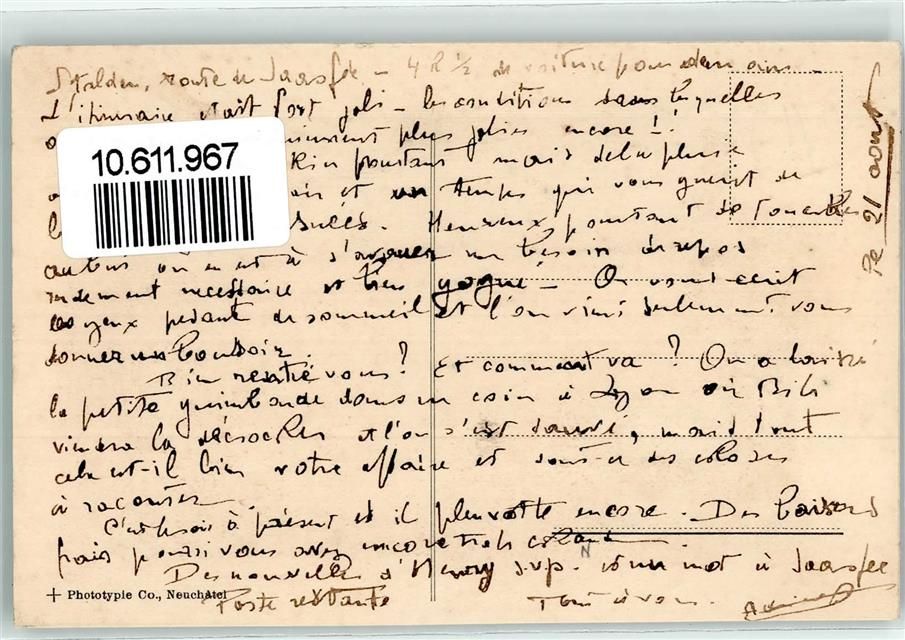 Stalden, route de Saasfée - 4 h ½ de voiture pour dem ain
L'itinéraire était fort joli - les conditions dans lesquelles
plus jolies encore !!
10.611.967
Rien pourtant mais de la pluie
et un temps qui vous guérit de
Heureux pourtant de
on en est à s'avouer un besoin de repos
rudement nécessaire et bien gagné - On vous écrit
les yeux pesant de sommeil et l'on vient seulement vous
donner un bonsoir.
Bien rentré vous ? Et comment va ? On a laissé
la petite guimbarde dans un coin à Lyon où Bibi
viendra la décrocher et l'on s'est sauvé, mais tout
cela est-il bien votre affaire et sont-ce des choses
à raconter
C'est le soir à présent et il pleuvotte encore. Des baisers
frais puisque vous avez encore très chaud.
Des nouvelles d'Henry s.v.p. et un mot à Saasfée
Poste restante Tout à vous.
Le 21 aout
Phototypie Co., Neuchâtel